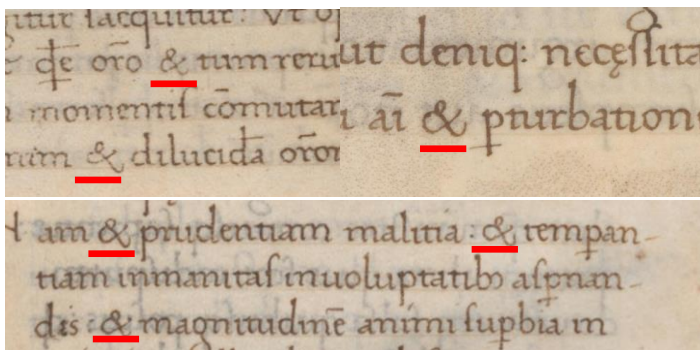 gitur sacquitur: Ut o
q̄e orō & tum reru
momentis cōmutar
num & diluciďa oror
ut deniq: necęssita
aī & p̱turbation
am & prudentiam malitia : & temp̱an-
tiam inmanitas inuoluptatib; asp̱nan-
dis : & magnitudinē animi sup̱bia in